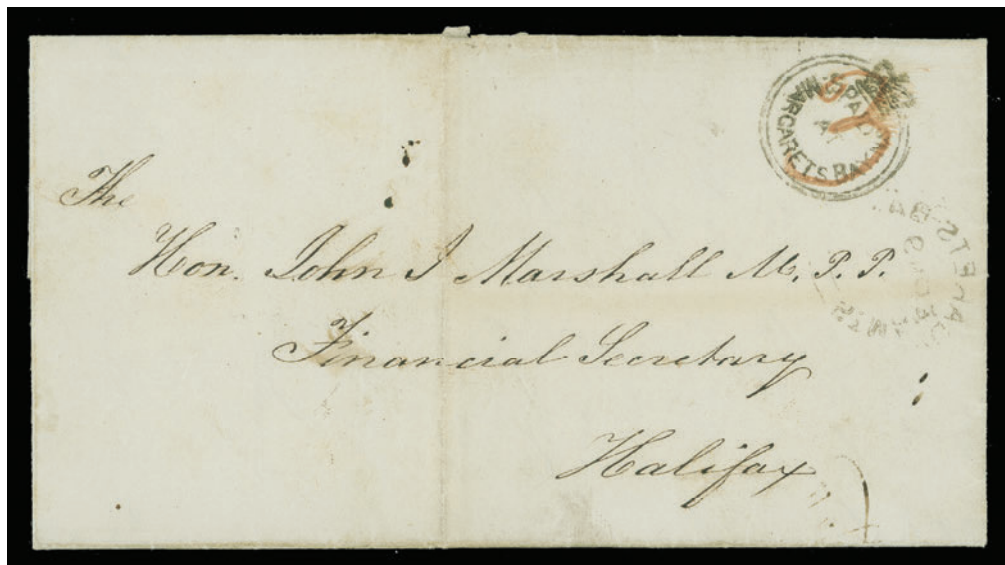 PAID
AT
MARGARETS BAY N.S
The
Hon. John J Marshall M. P. P.
Financial Secretary
Halifax